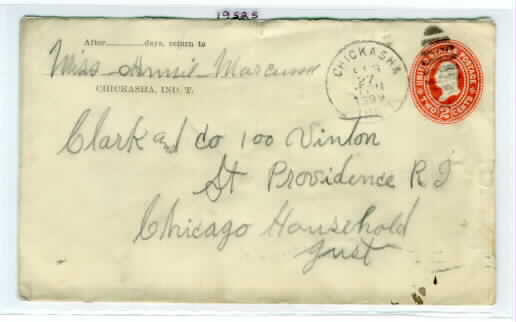 19525
After______days, return to
Miss Annie Marcum
CHICKASHA, IND. T.
CHICKASHA
27
UNITED STATES POSTAGE
2
TWO CENTS
Clark and Co 100 Vinton
St Providence R I
Chicago Household
Just